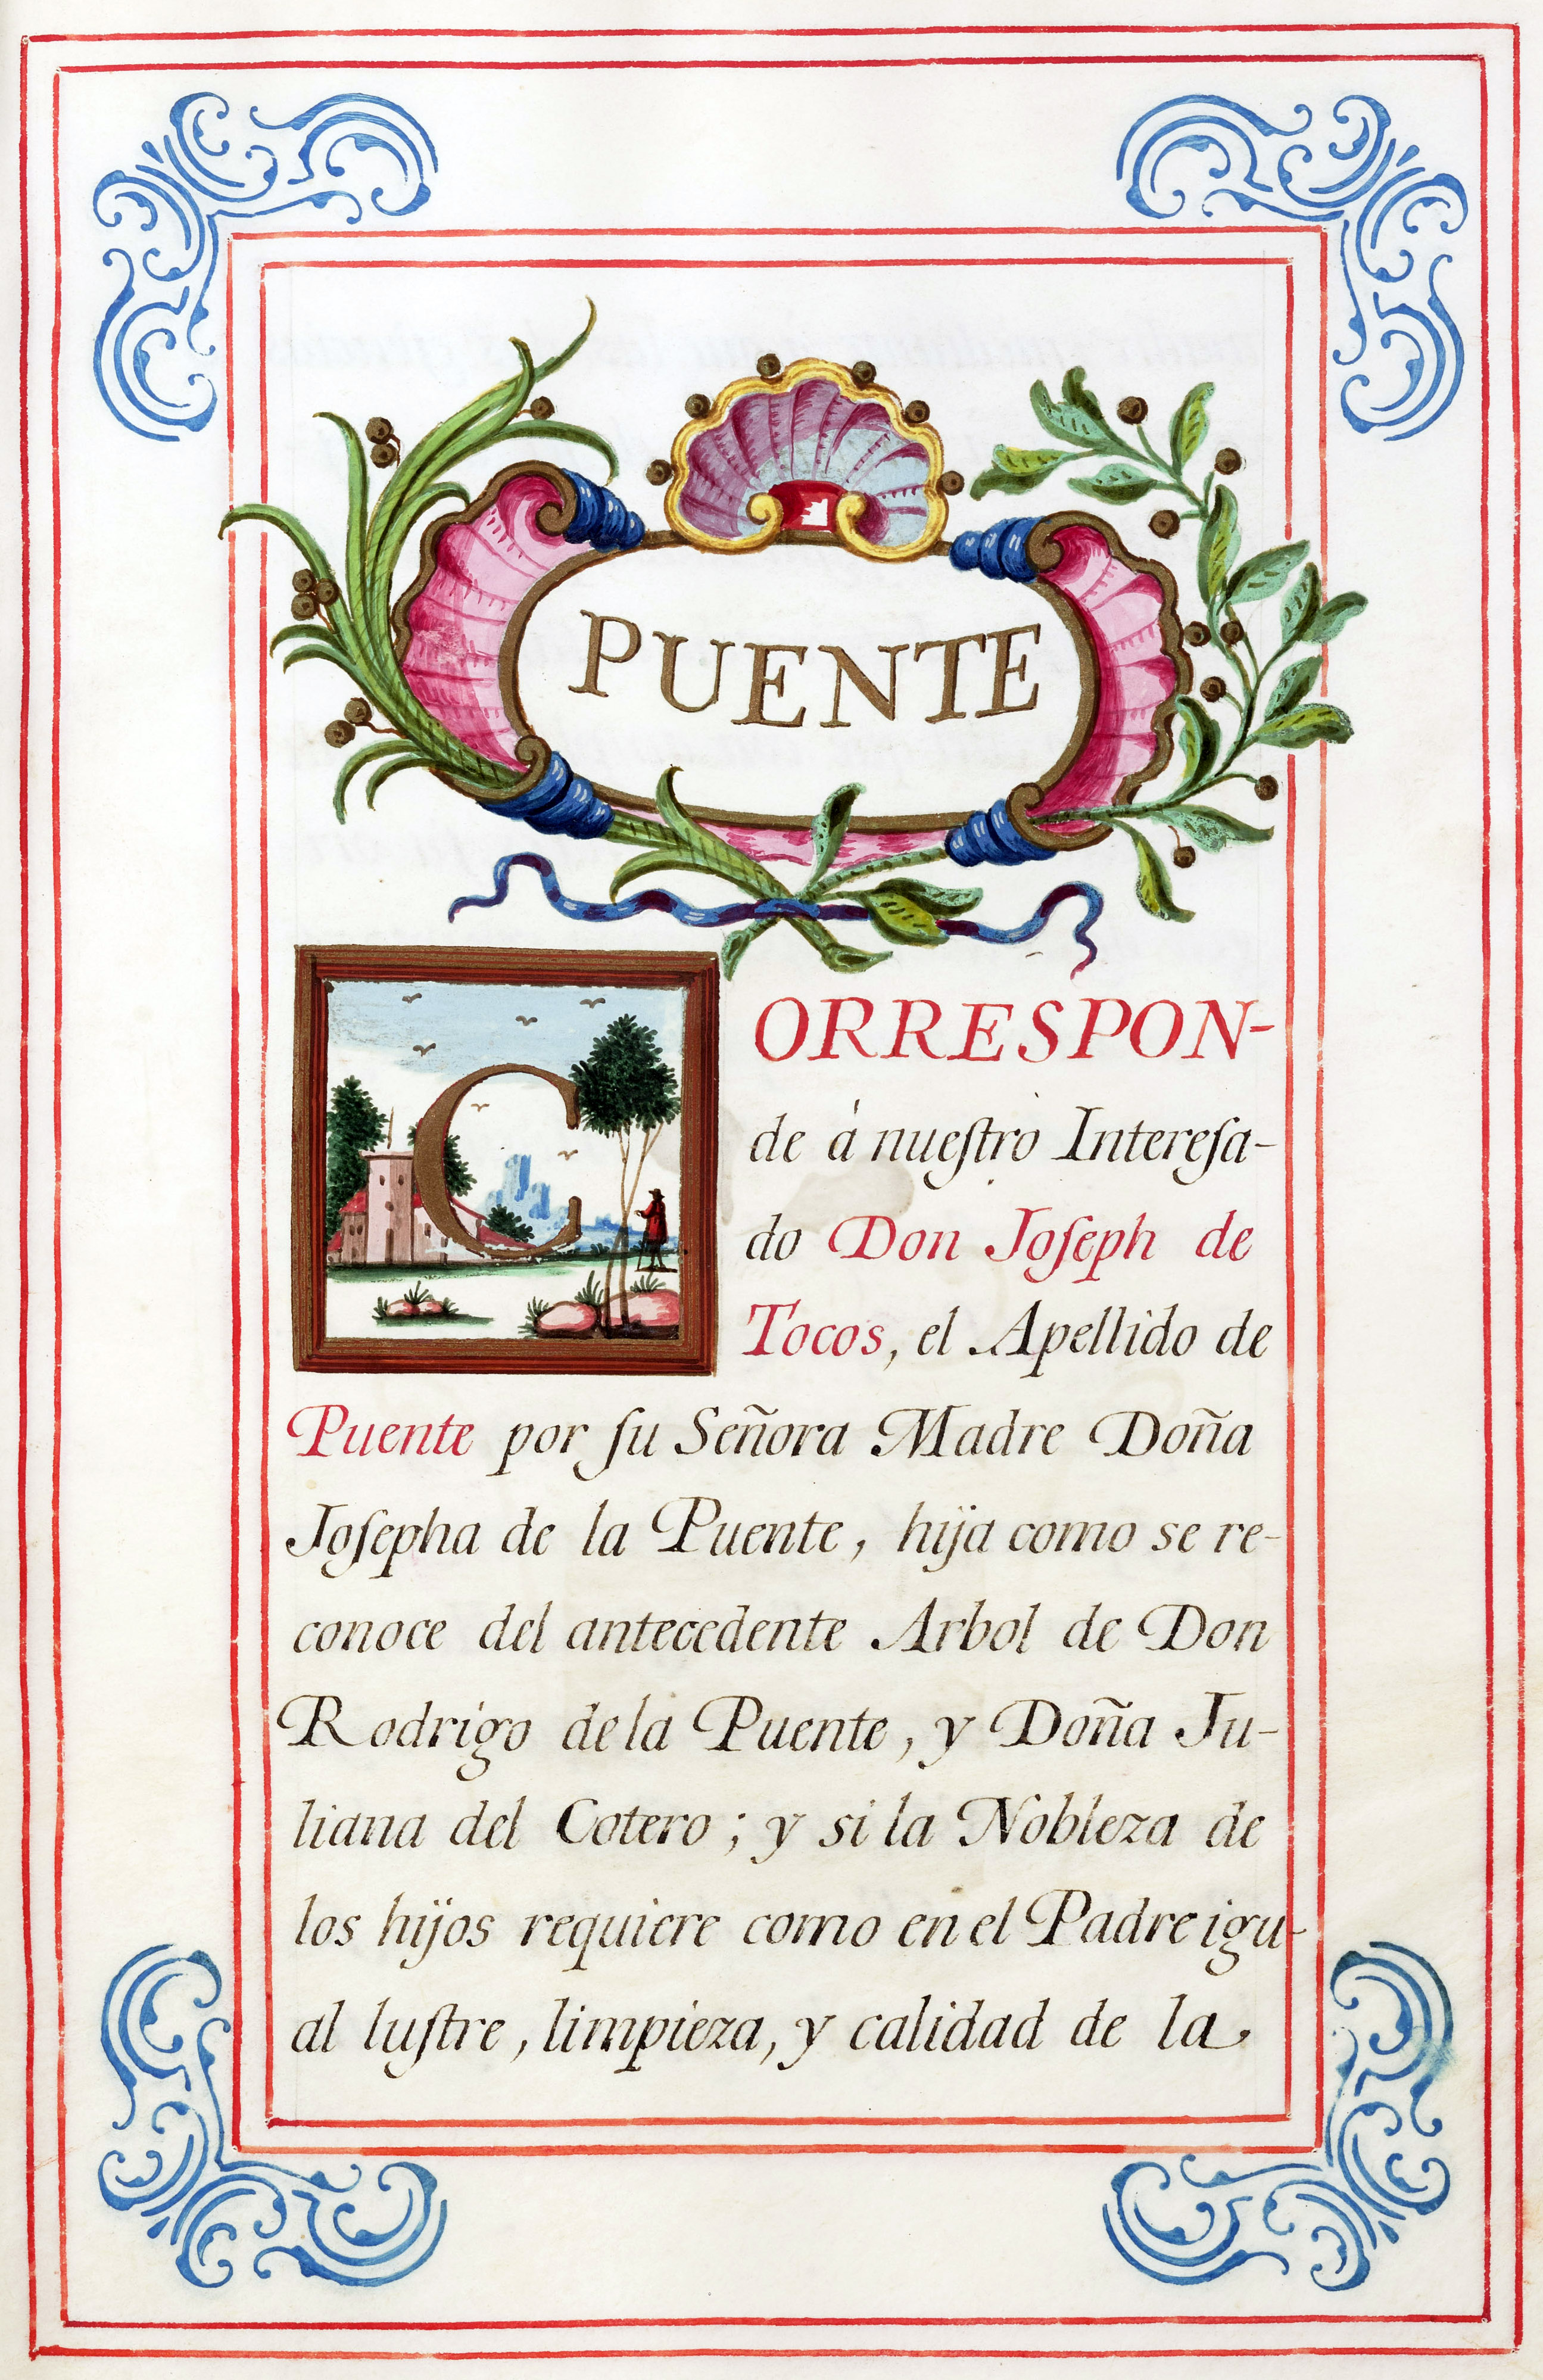 PUENTE
CORRESPON-
de á nueſtro Intereſa-
do Don Joſeph de
Tocos, el Apellido de
Puente por ſu Señora Madre Doña
Joſepha de la Puente, hija como se re-
conoce del antecedente Arbol de Don
Rodrigo de la Puente, y Doña Ju-
liana del Cotero; y si la Nobleza de
los hijos requiere como en el Padre igu-
al luſtre, limpieza, y calidad de la